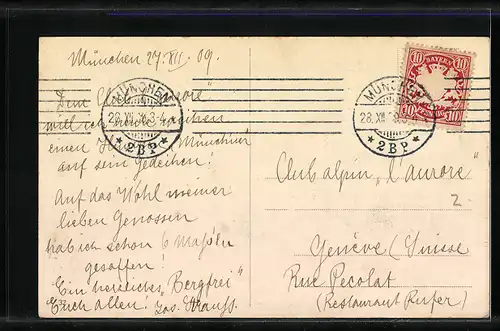 München 27. XII. 09.
Dem Club "
will ich
einen Münchner
auf sein Gedeihen!
Auf das Wohl meiner
lieben Genossen
hab ich schon 6 Maß'ln
gesoffen!
Ein herzliches "Bergfrei"
Euch allen! Jos. Strauss.
MÜNCHEN
28. XII.
* 2 B P *
MÜNCHEN
28. XII.
* 2 B P *
10 BAYERN 10
10 10
Club alpin "l'aurore"
2
Genève (Suisse
Rue Pecolat
(Restaurant